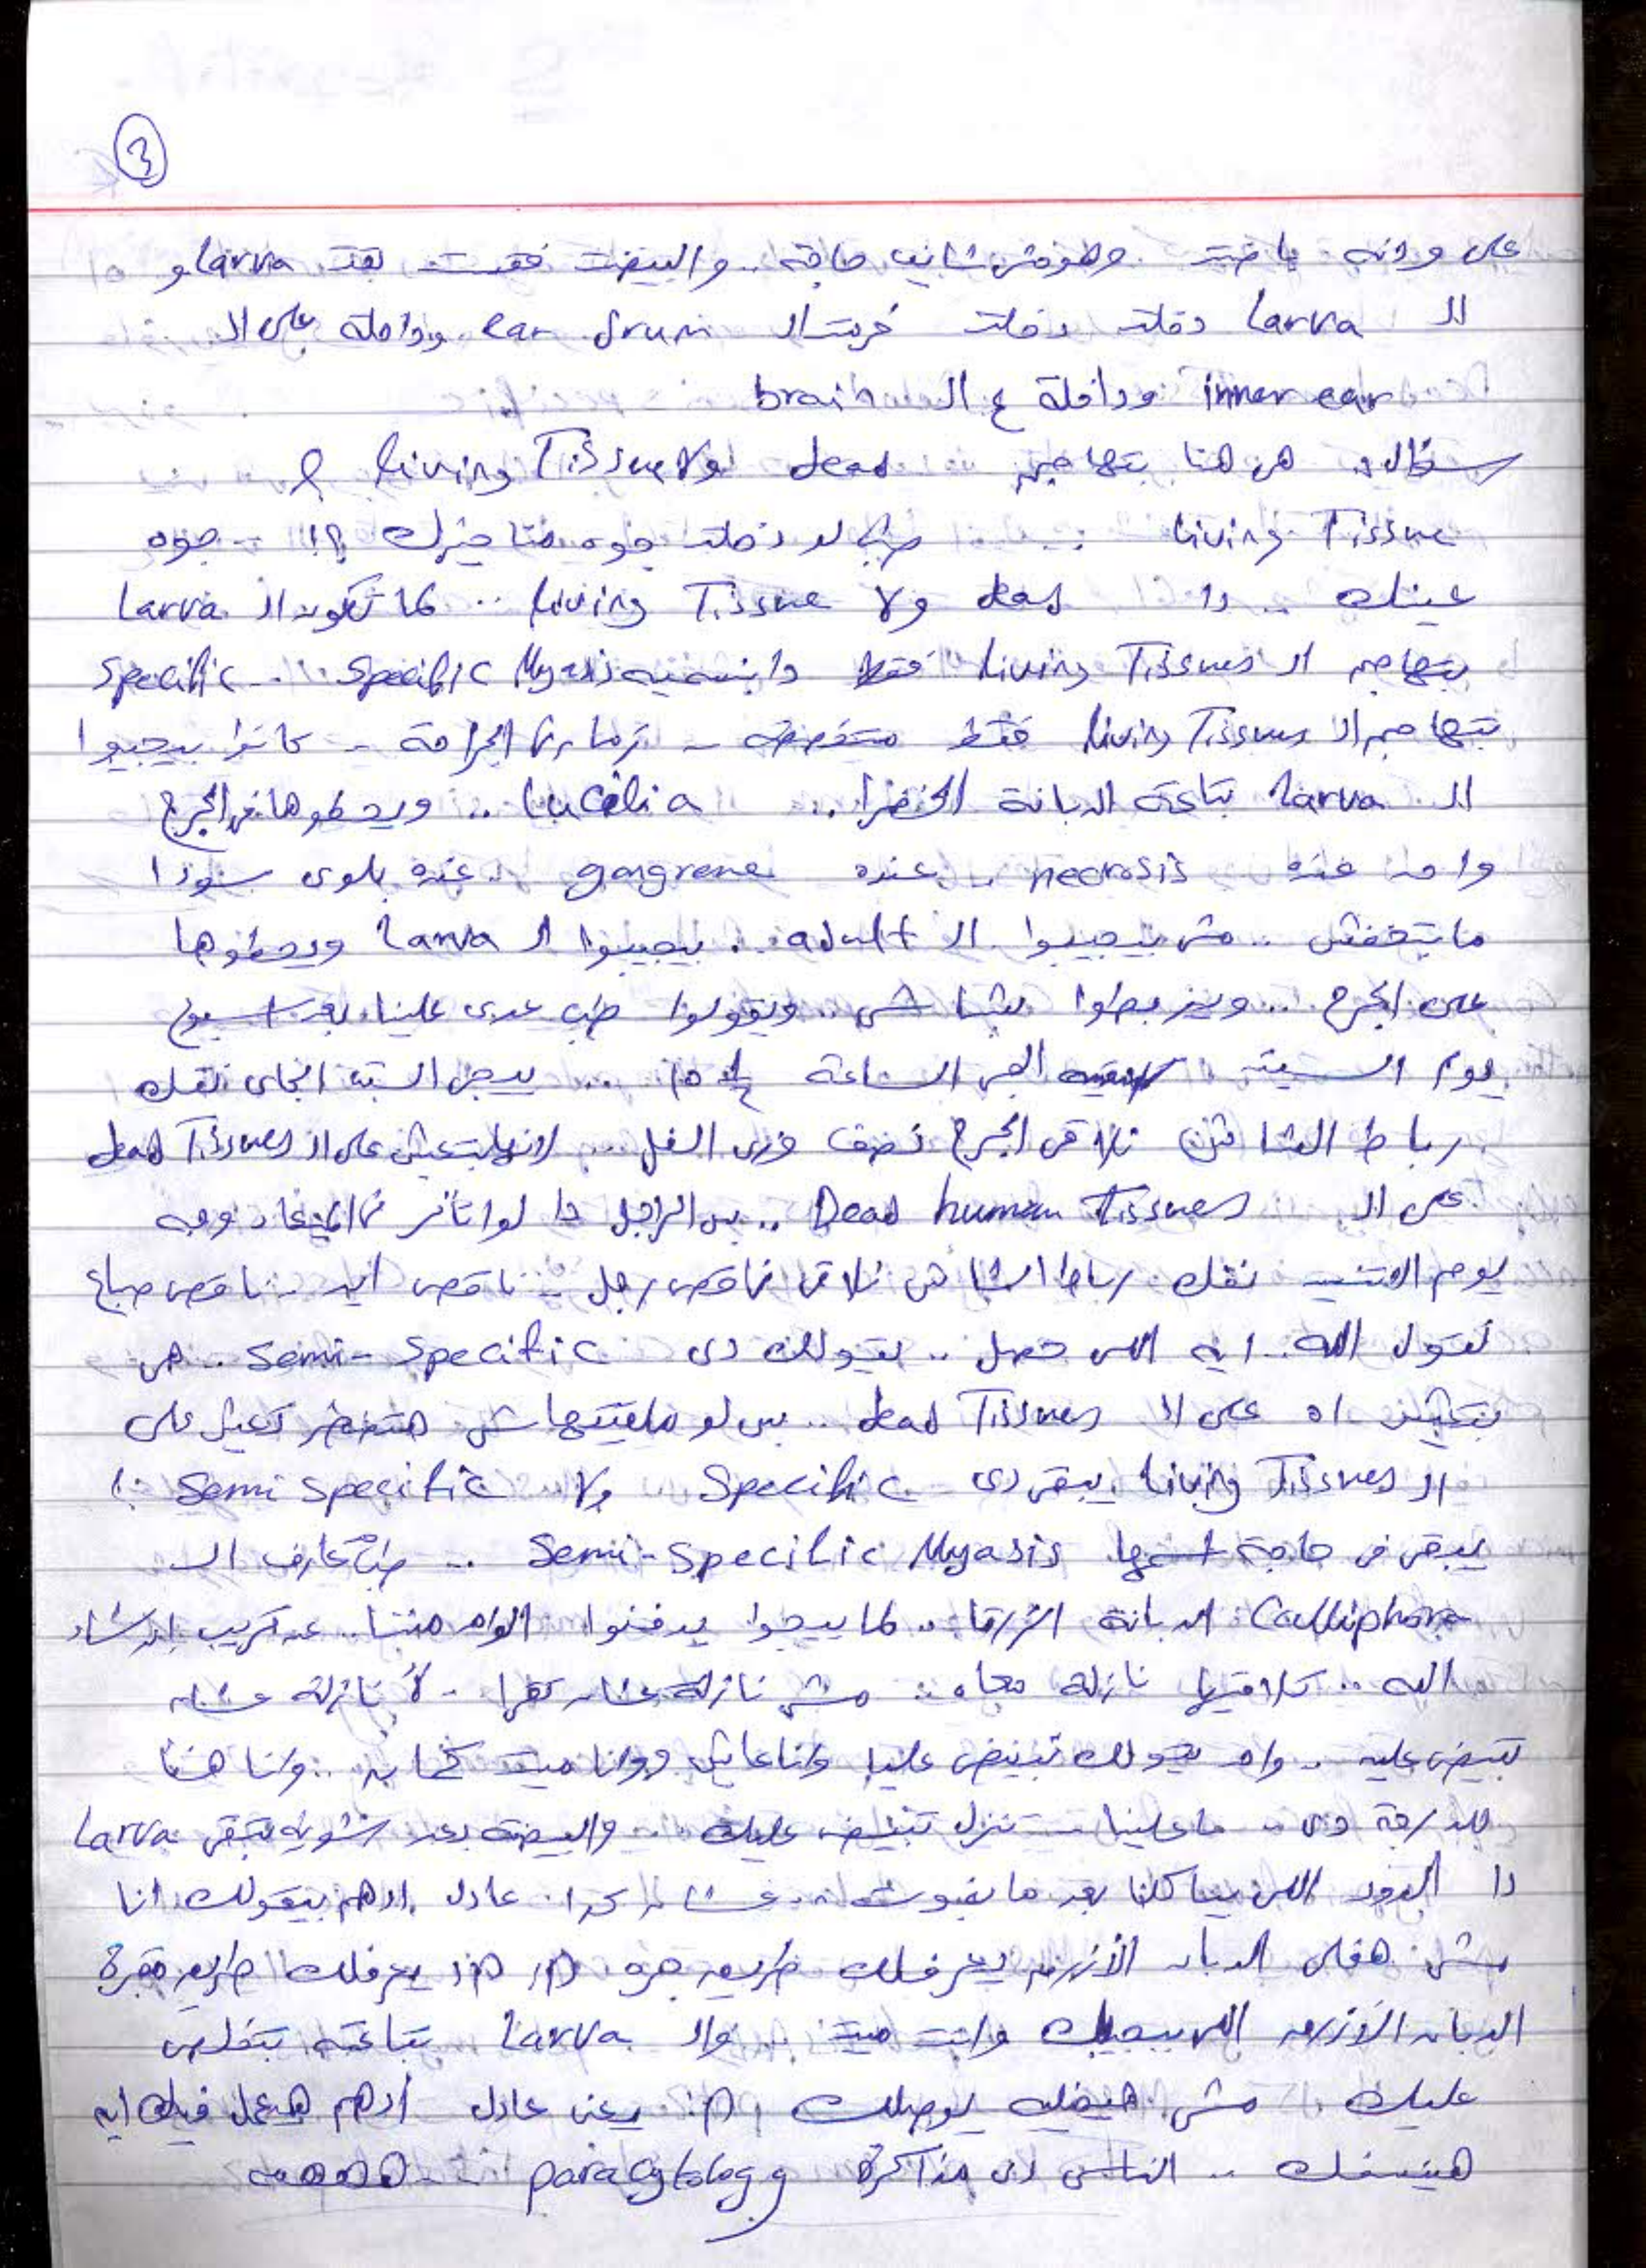 3
على ودنه باضت وهو مش شايف حاجة .. والبيضة فقست بقت larva و
الـ larva دخلت دخلت خرمت الـ ear drum وداخلة على الـ
inner ear وداخلة ع الـ brain
سؤال هى هنا بتهاجم dead ولا living Tissue ؟
living Tissue .. طب لو دخلت جوه مناخيرك ؟! - جوه
عينك .. دا dead ولا living Tissue .. لما تكون الـ larva
بتهاجم الـ living Tissues فقط دا بنسميه specific Myasis .. specific
بتهاجم الـ living Tissues فقط متخصصة - زمان الجراحة - كانوا بيجيبوا
الـ larva بتاعة الدبانة الخضرا .. Lucilia .. ويحطوها فى الجرح
واحد عنده necrosis .. عنده gangrene .. عنده بلوى سودا
مابتخفش .. مش بيجيبوا الـ adult .. بيجيبوا الـ larva ويحطوها
على الجرح .. ويربطوا بشاش .. ويقولوا طب عدى علينا بعد اسبوع
يوم السبت الجى الساعة .. ييجى السبت الجاى نفك
رباط الشاش نلاقى الجرح نضف وزى الفل ... لانها بتعيش على الـ dead Tissues
على الـ Dead human Tissues .. بس الراجل دا لو اتأخر عن الميعاد وجه
يوم نفك رباط الشاش نلاقى ناقص رجل - ناقص ايد - ناقص صباع
تقول الله . ايه اللى حصل .. يقولك دى semi-specific .. هى
بتعيش اه على الـ dead Tissues .. بس لو مالقيتهاش هتضطر تعيش على
الـ living Tissues يبقى دى specific ولا semi specific ؟!
يبقى فى حاجة اسمها semi-specific Myasis .. طب عارف الـ
Calliphora الدبانة الزرقا .. لما ييجوا يدفنوا الواحد مننا .. عن قريب ان شاء
الله .. تلاقيها نازلة معاه .. مش نازلة عشان تقرا - لأ نازلة عشان
تبيض عليه .. واحد يقولك تبيض عليا وانا عايش وانا ميت كمان .. وانا هنا
للدرجة دى .. ما علينا - تنزل تبيض عليك .. والبيضة بعد شوية تبقى larva
دا الدود اللى بياكلنا بعد ما نموت .. عشان كدا عادل ادهم بيقولك انا
مش هخلى الدبان الأزرق يعرفلك طريق جرة اه اه يعرفلك طريق جرة
الدبان الأزرق اللى بيجيلك وانت ميت والـ larva بتاعته بتخلص
عليك مش هيخليه يوصلك اه يعنى عادل أدهم هيعمل فيك ايه
هينسفك .. الناس دى مذاكرة paracytology - ههههه